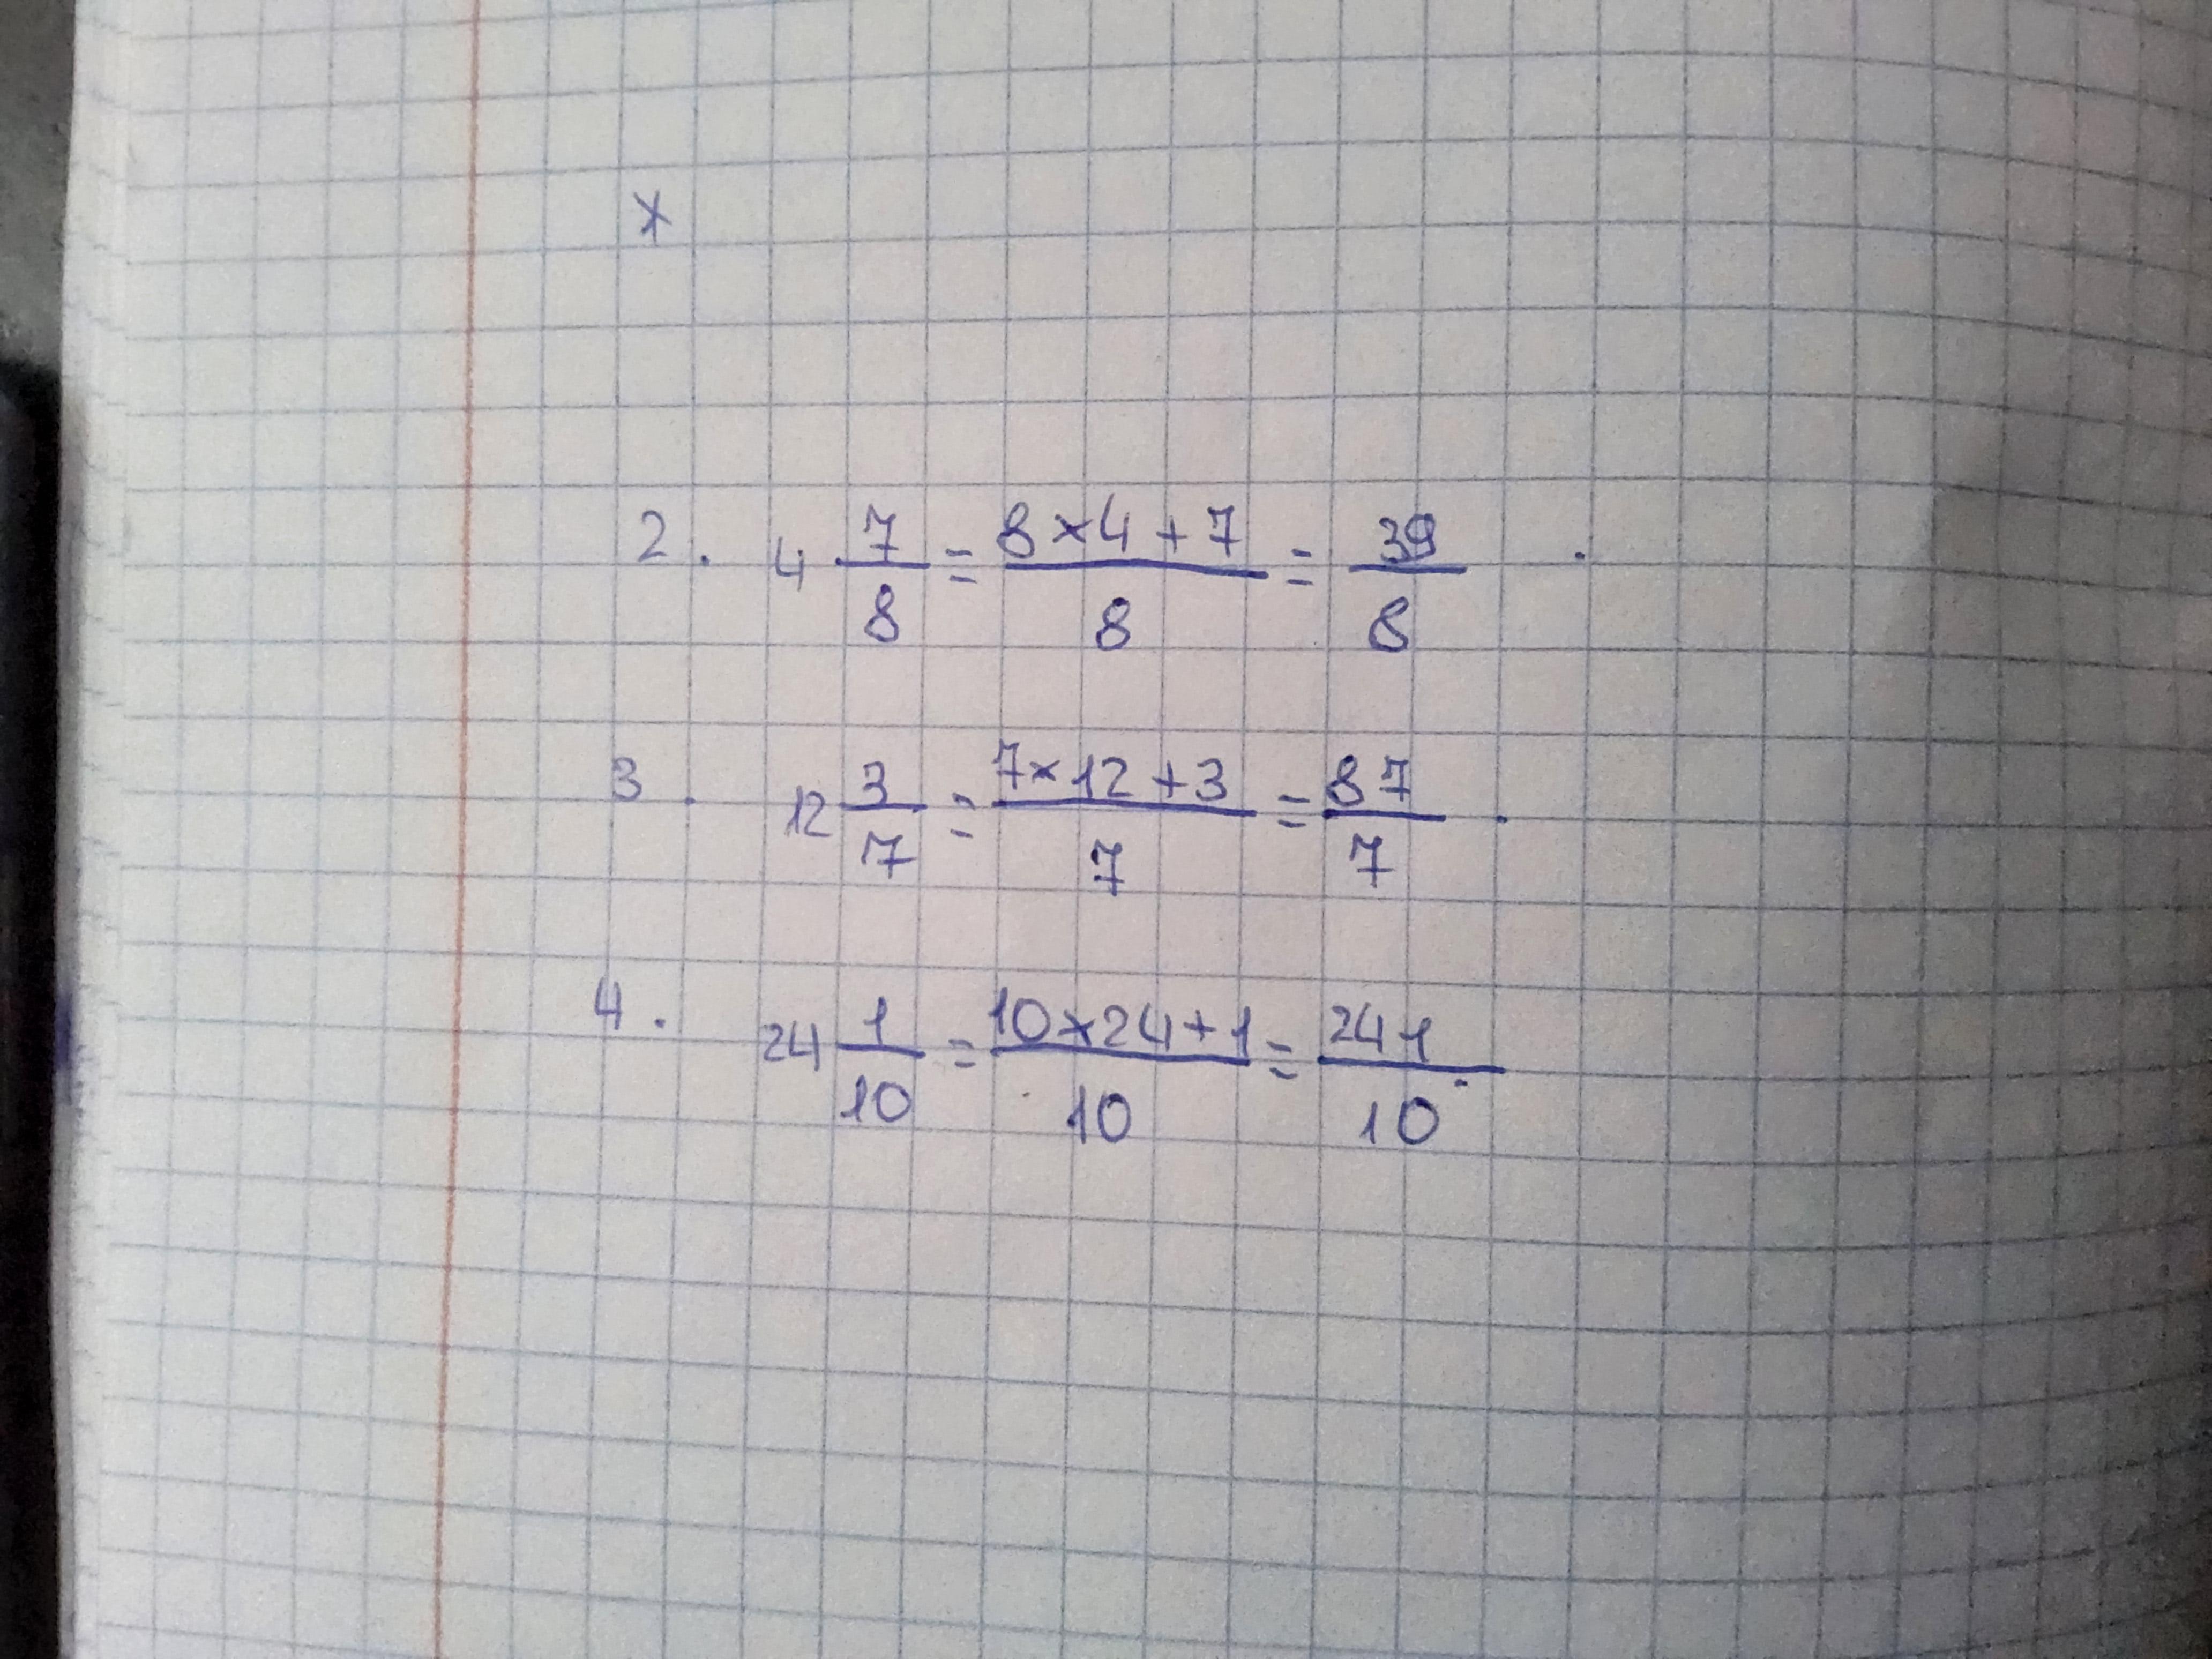 x
2. 4 7/8 = 8 x 4 + 7 / 8 = 39/8 .
3. 12 3/7 = 7 x 12 + 3 / 7 = 87/7 .
4. 24 1/10 = 10 x 24 + 1 / 10 = 241/10 .